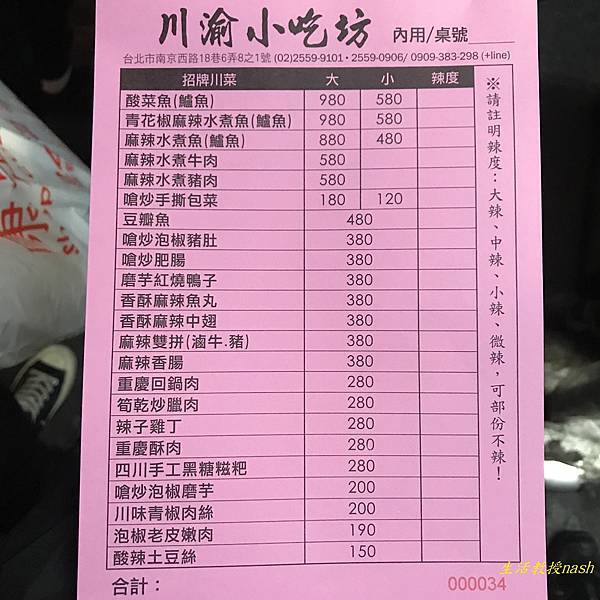 川渝小吃坊 內用/桌號
台北市南京西路18巷6弄8之1號 (02)2559-9101・2559-0906/ 0909-383-298 (+line)
招牌川菜 大 小 辣度
酸菜魚(鱸魚) 980 580
青花椒麻辣水煮魚(鱸魚) 980 580
麻辣水煮魚(鱸魚) 880 480
麻辣水煮牛肉 580
麻辣水煮豬肉 580
嗆炒手撕包菜 180 120
豆瓣魚 480
嗆炒泡椒豬肚 380
嗆炒肥腸 380
磨芋紅燒鴨子 380
香酥麻辣魚丸 380
香酥麻辣中翅 380
麻辣雙拼(滷牛.豬) 380
麻辣香腸 380
重慶回鍋肉 280
筍乾炒臘肉 280
辣子雞丁 280
重慶酥肉 280
四川手工黑糖糍粑 280
嗆炒泡椒磨芋 200
川味青椒肉絲 200
泡椒老皮嫩肉 190
酸辣土豆絲 150
※請註明辣度：大辣、中辣、小辣、微辣，可部份不辣！
合計：
000034
生活教授nash